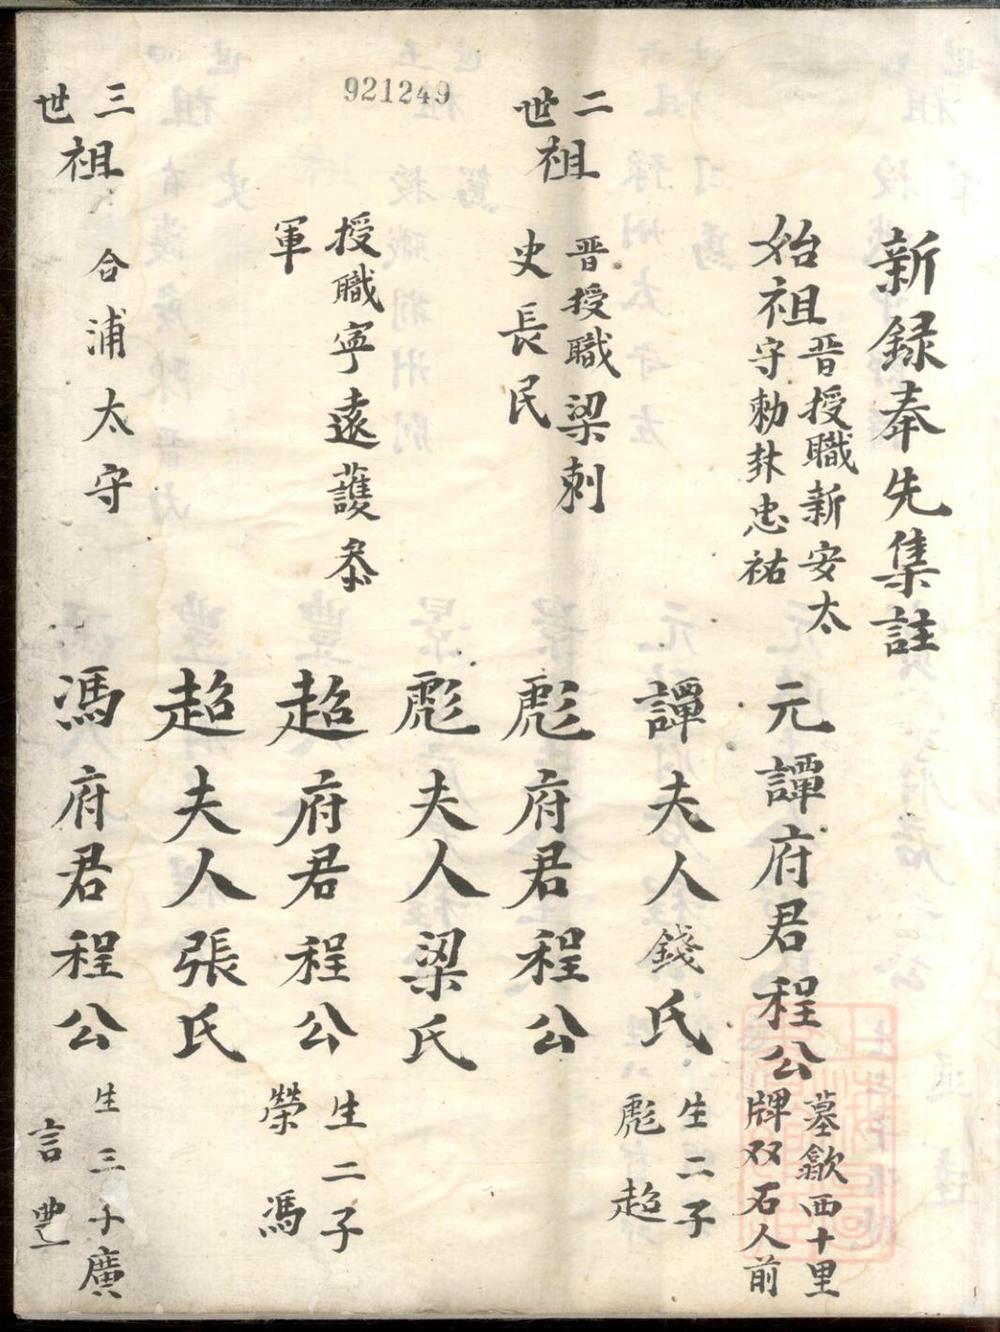 921249
新録奉先集註
始祖
晋授職新安太
守勅封忠祐
元譚府君程公
墓歙西十里
牌双石人前
譚夫人錢氏
生二子
彪超
二世
祖
晋授職梁刺
史長民
彪府君程公
彪夫人梁氏
授職寜遠護叅
軍
超府君程公
生二子
榮馮
超夫人張氏
三世
祖
合浦太守
馮府君程公
生三子廣
言豊